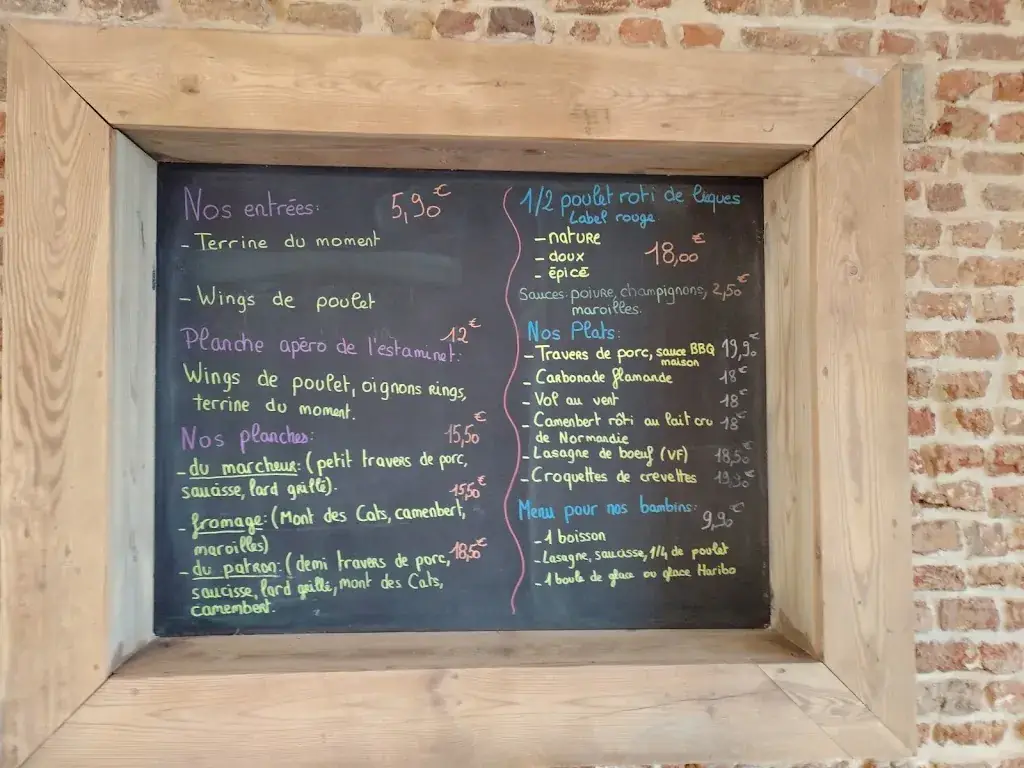 Nos entrées: 5,90€
- Terrine du moment
- Wings de poulet
12€
Planche apéro de l'estaminet:
Wings de poulet, oignons rings,
terrine du moment.
Nos planches: 15,50€
- du marcheur: (petit travers de porc,
saucisse, lard grillé).
15,50€
- fromage: (Mont des Cats, camembert,
maroilles)
- du patron: (demi travers de porc, 18,50€
saucisse, lard grillé, mont des Cats,
camembert.
1/2 poulet roti de Licques
Label rouge
- nature
- doux 18,00€
- épicé
Sauces: poivre, champignons, 2,50€
maroilles.
Nos Plats:
- Travers de porc, sauce BBQ 19,90€
maison
- Carbonade flamande 18€
- Vol au vent 18€
- Camembert rôti au lait cru 18€
de Normandie
- Lasagne de boeuf (VF) 18,50€
- Croquettes de crevettes 19,90€
Menu pour nos bambins: 9,90€
- 1 boisson
- Lasagne, saucisse, 1/4 de poulet
- 1 boule de glace ou glace Haribo